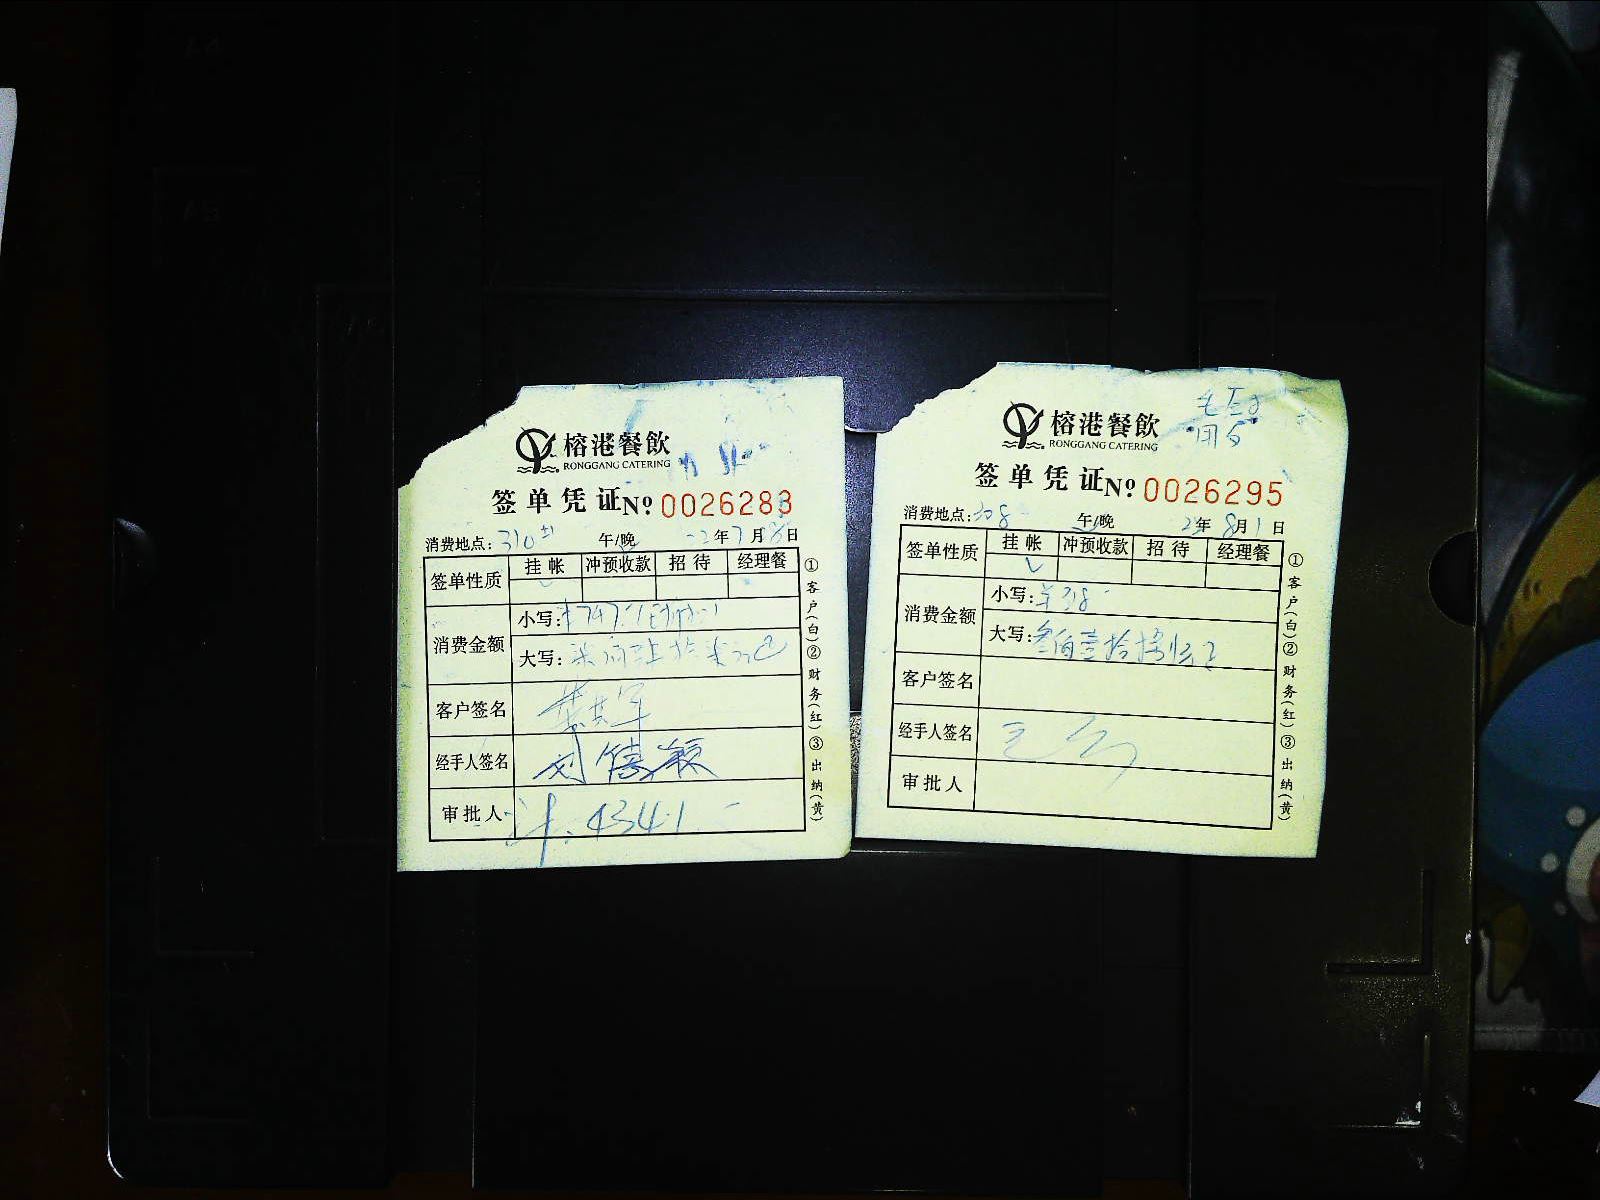 榕港餐飲
RONGGANG CATERING
签单凭证 Nº 0026283
消费地点: 310 午/晚 22年7月 日
签单性质 挂帐 冲预收款 招待 经理餐
消费金额
小写: ¥747
大写:
客户签名
经手人签名
审批人 4341
①客户(白)②财务(红)③出纳(黄)
榕港餐飲
RONGGANG CATERING
签单凭证 Nº 0026295
消费地点: 308 午/晚 2年8月1日
签单性质 挂帐 冲预收款 招待 经理餐
消费金额
小写: 318
大写: 叁佰壹拾捌
客户签名
经手人签名
审批人
①客户(白)②财务(红)③出纳(黄)